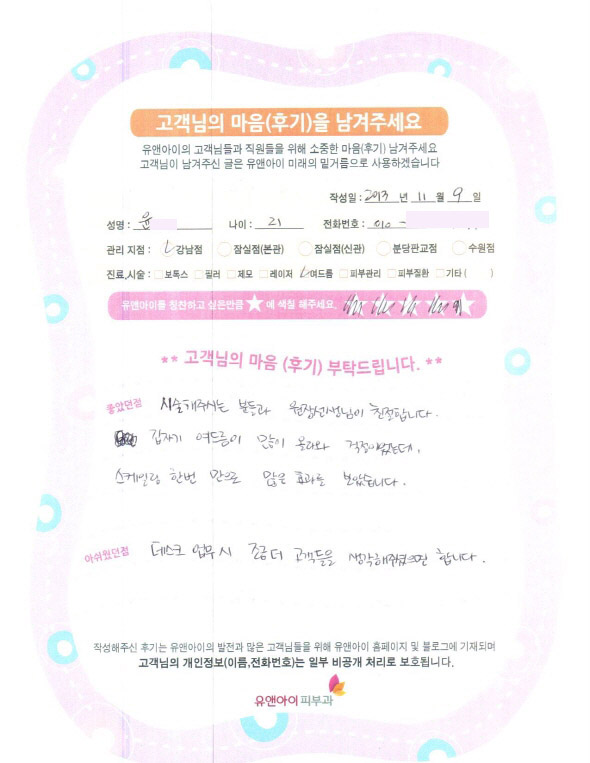 고객님의 마음(후기)을 남겨주세요
유앤아이의 고객님들과 직원들을 위해 소중한 마음(후기) 남겨주세요
고객님이 남겨주신 글은 유앤아이 미래의 밑거름으로 사용하겠습니다
작성일 : 2013 년 11 월 9 일
성명 : 윤 나이 : 21 전화번호 : 010 -
관리 지점 : 강남점 잠실점(본관) 잠실점(신관) 분당판교점 수원점
진료,시술 : 보톡스 필러 제모 레이저 여드름 피부관리 피부질환 기타 ( )
유앤아이를 칭찬하고 싶은만큼 ★ 에 색칠 해주세요.
** 고객님의 마음 (후기) 부탁드립니다. **
좋았던점 시술해주시는 분들과 원장선생님이 친절합니다.
갑자기 여드름이 많이 올라와 걱정이었는데,
스케일링 한번 만으로 많은 효과를 보았습니다.
아쉬웠던점 데스크 업무시 조금더 고객들을 생각해주셨으면 합니다.
작성해주신 후기는 유앤아이의 발전과 많은 고객님들을 위해 유앤아이 홈페이지 및 블로그에 기재되며
고객님의 개인정보(이름,전화번호)는 일부 비공개 처리로 보호됩니다.
유앤아이피부과